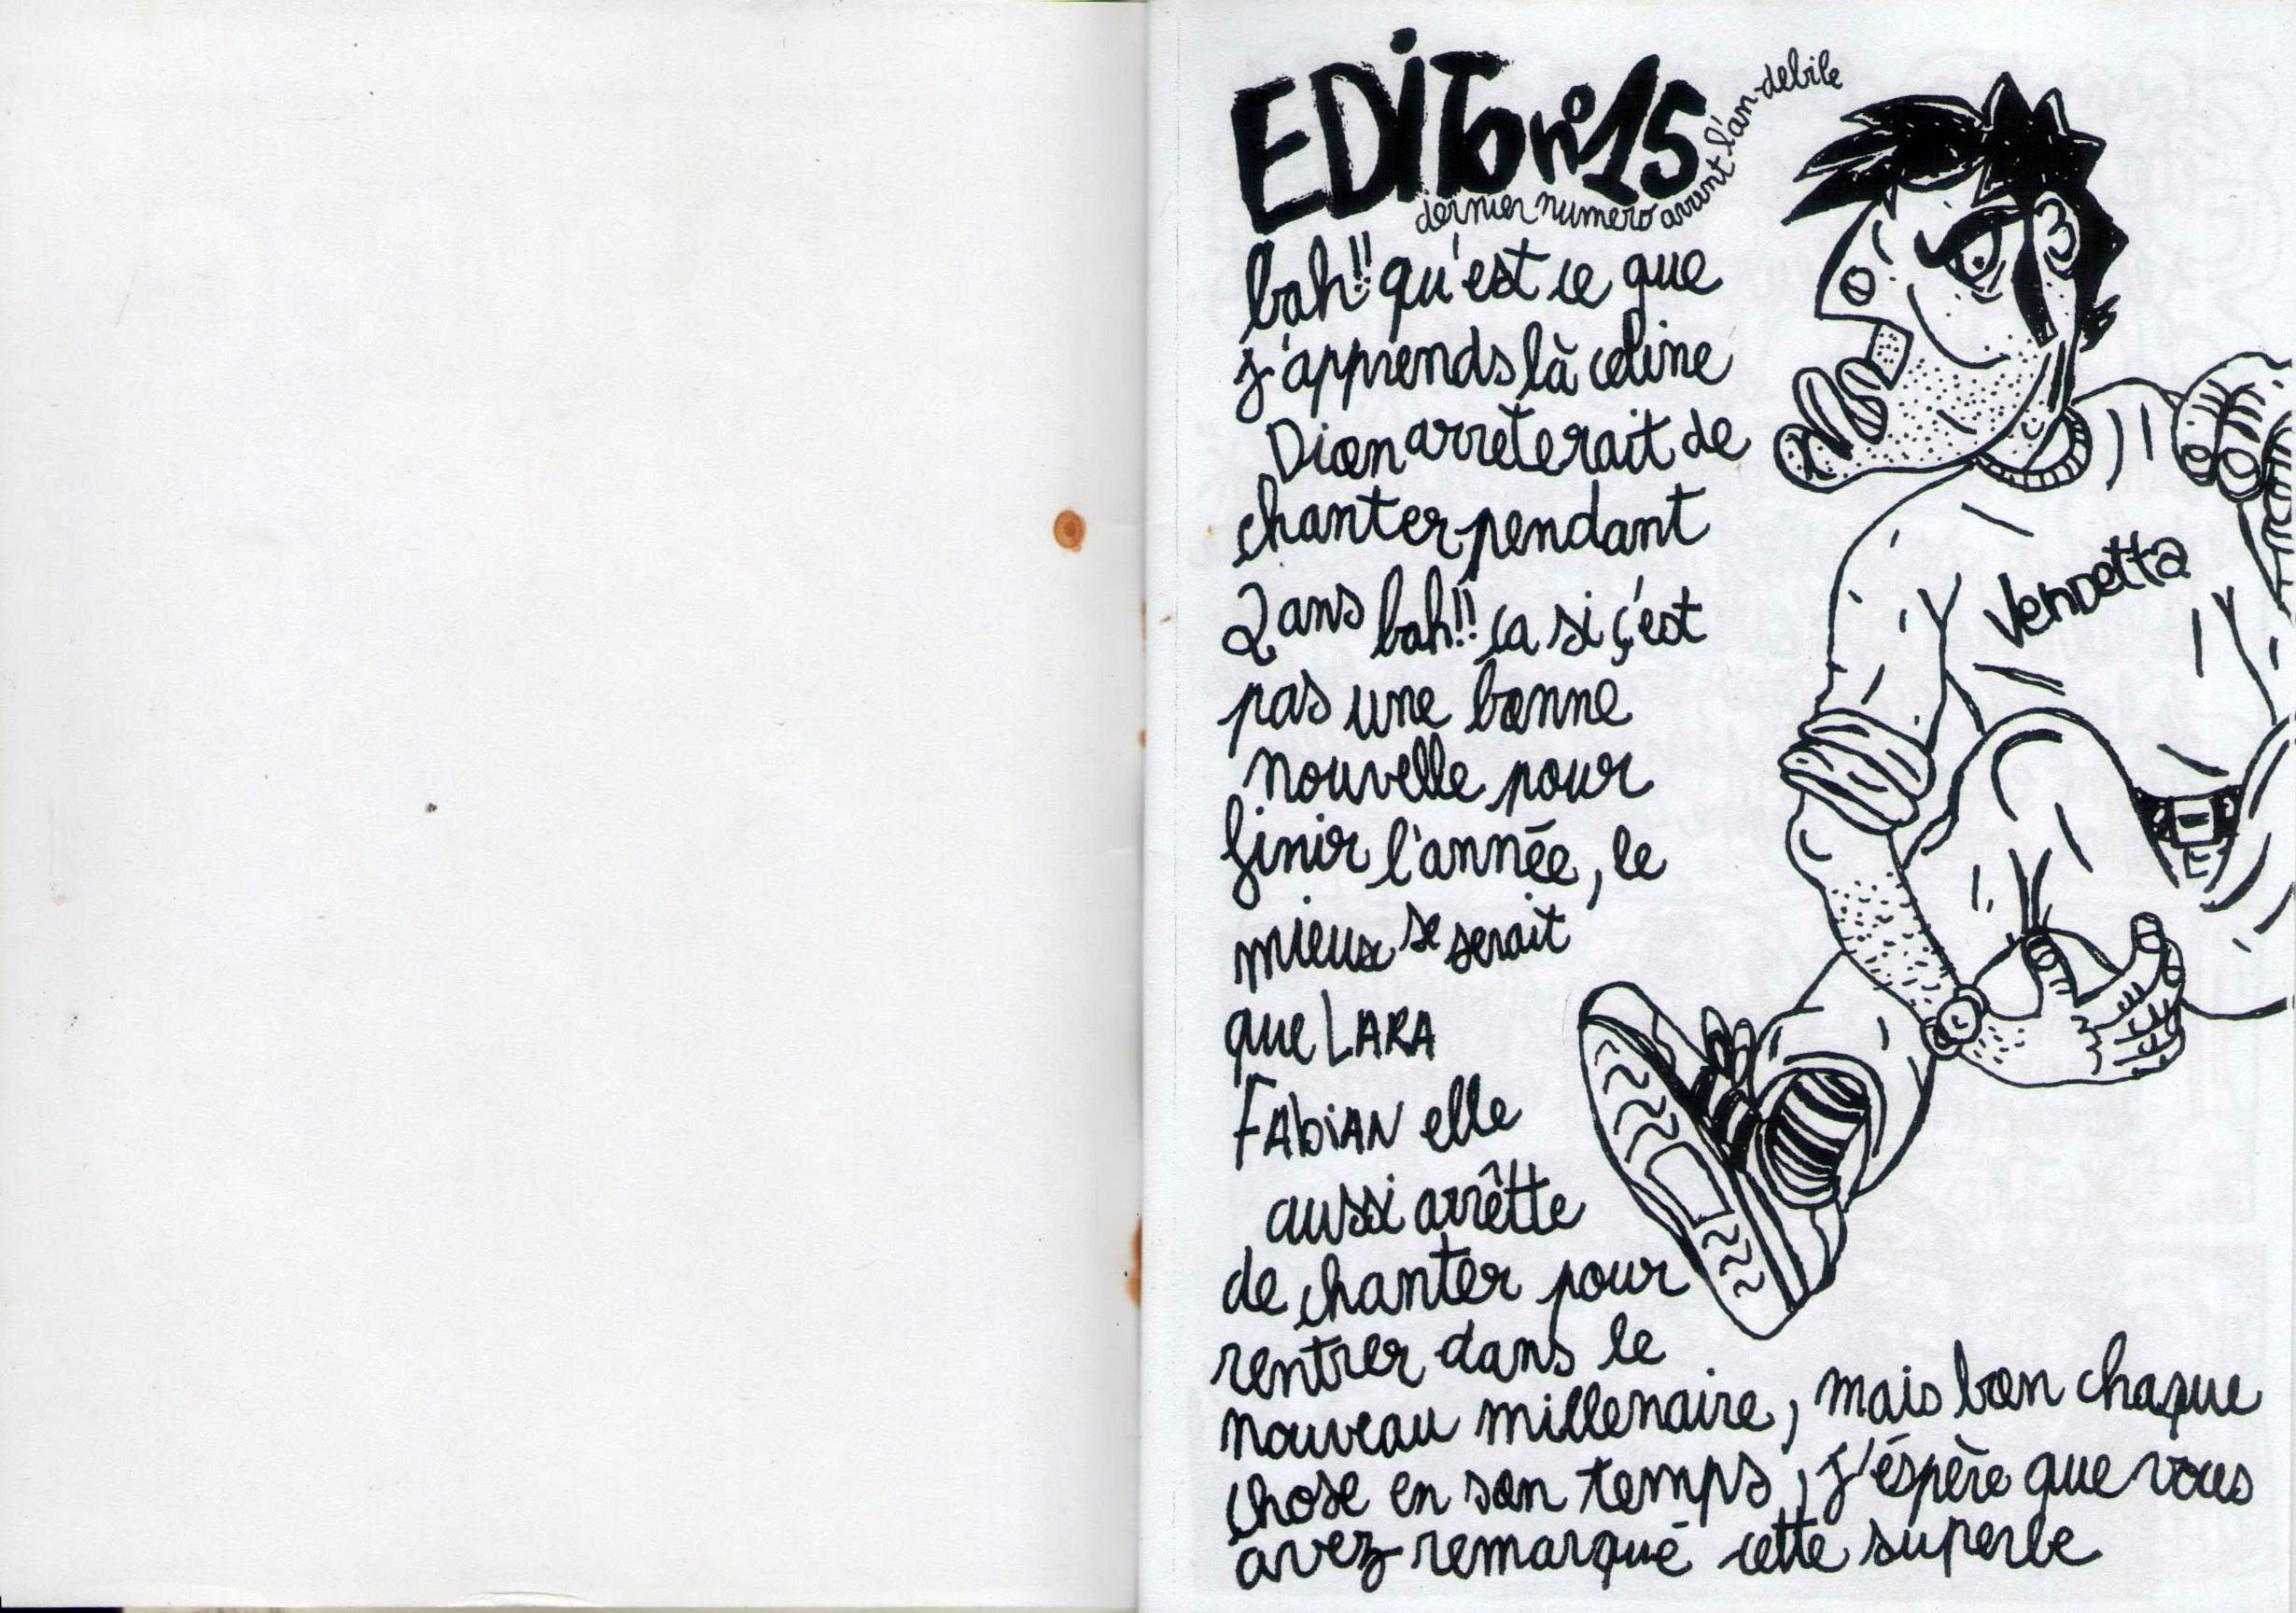 EDITo n°15
dernier numero avant l'an-debile
bah!! qu'est ce que
j'apprends là celine
Dion arrêterait de
chanter pendant
2 ans bah!! ça si ç'est
pas une bonne
nouvelle pour
finir l'année, le
mieux se serait
que LARA
FAbiAN elle
aussi arrêtte
de chanter pour
rentrer dans le
nouveau millenaire, mais bon chaque
chose en son temps, j'éspère que vous
avez remarqué cette superbe
Vendetta